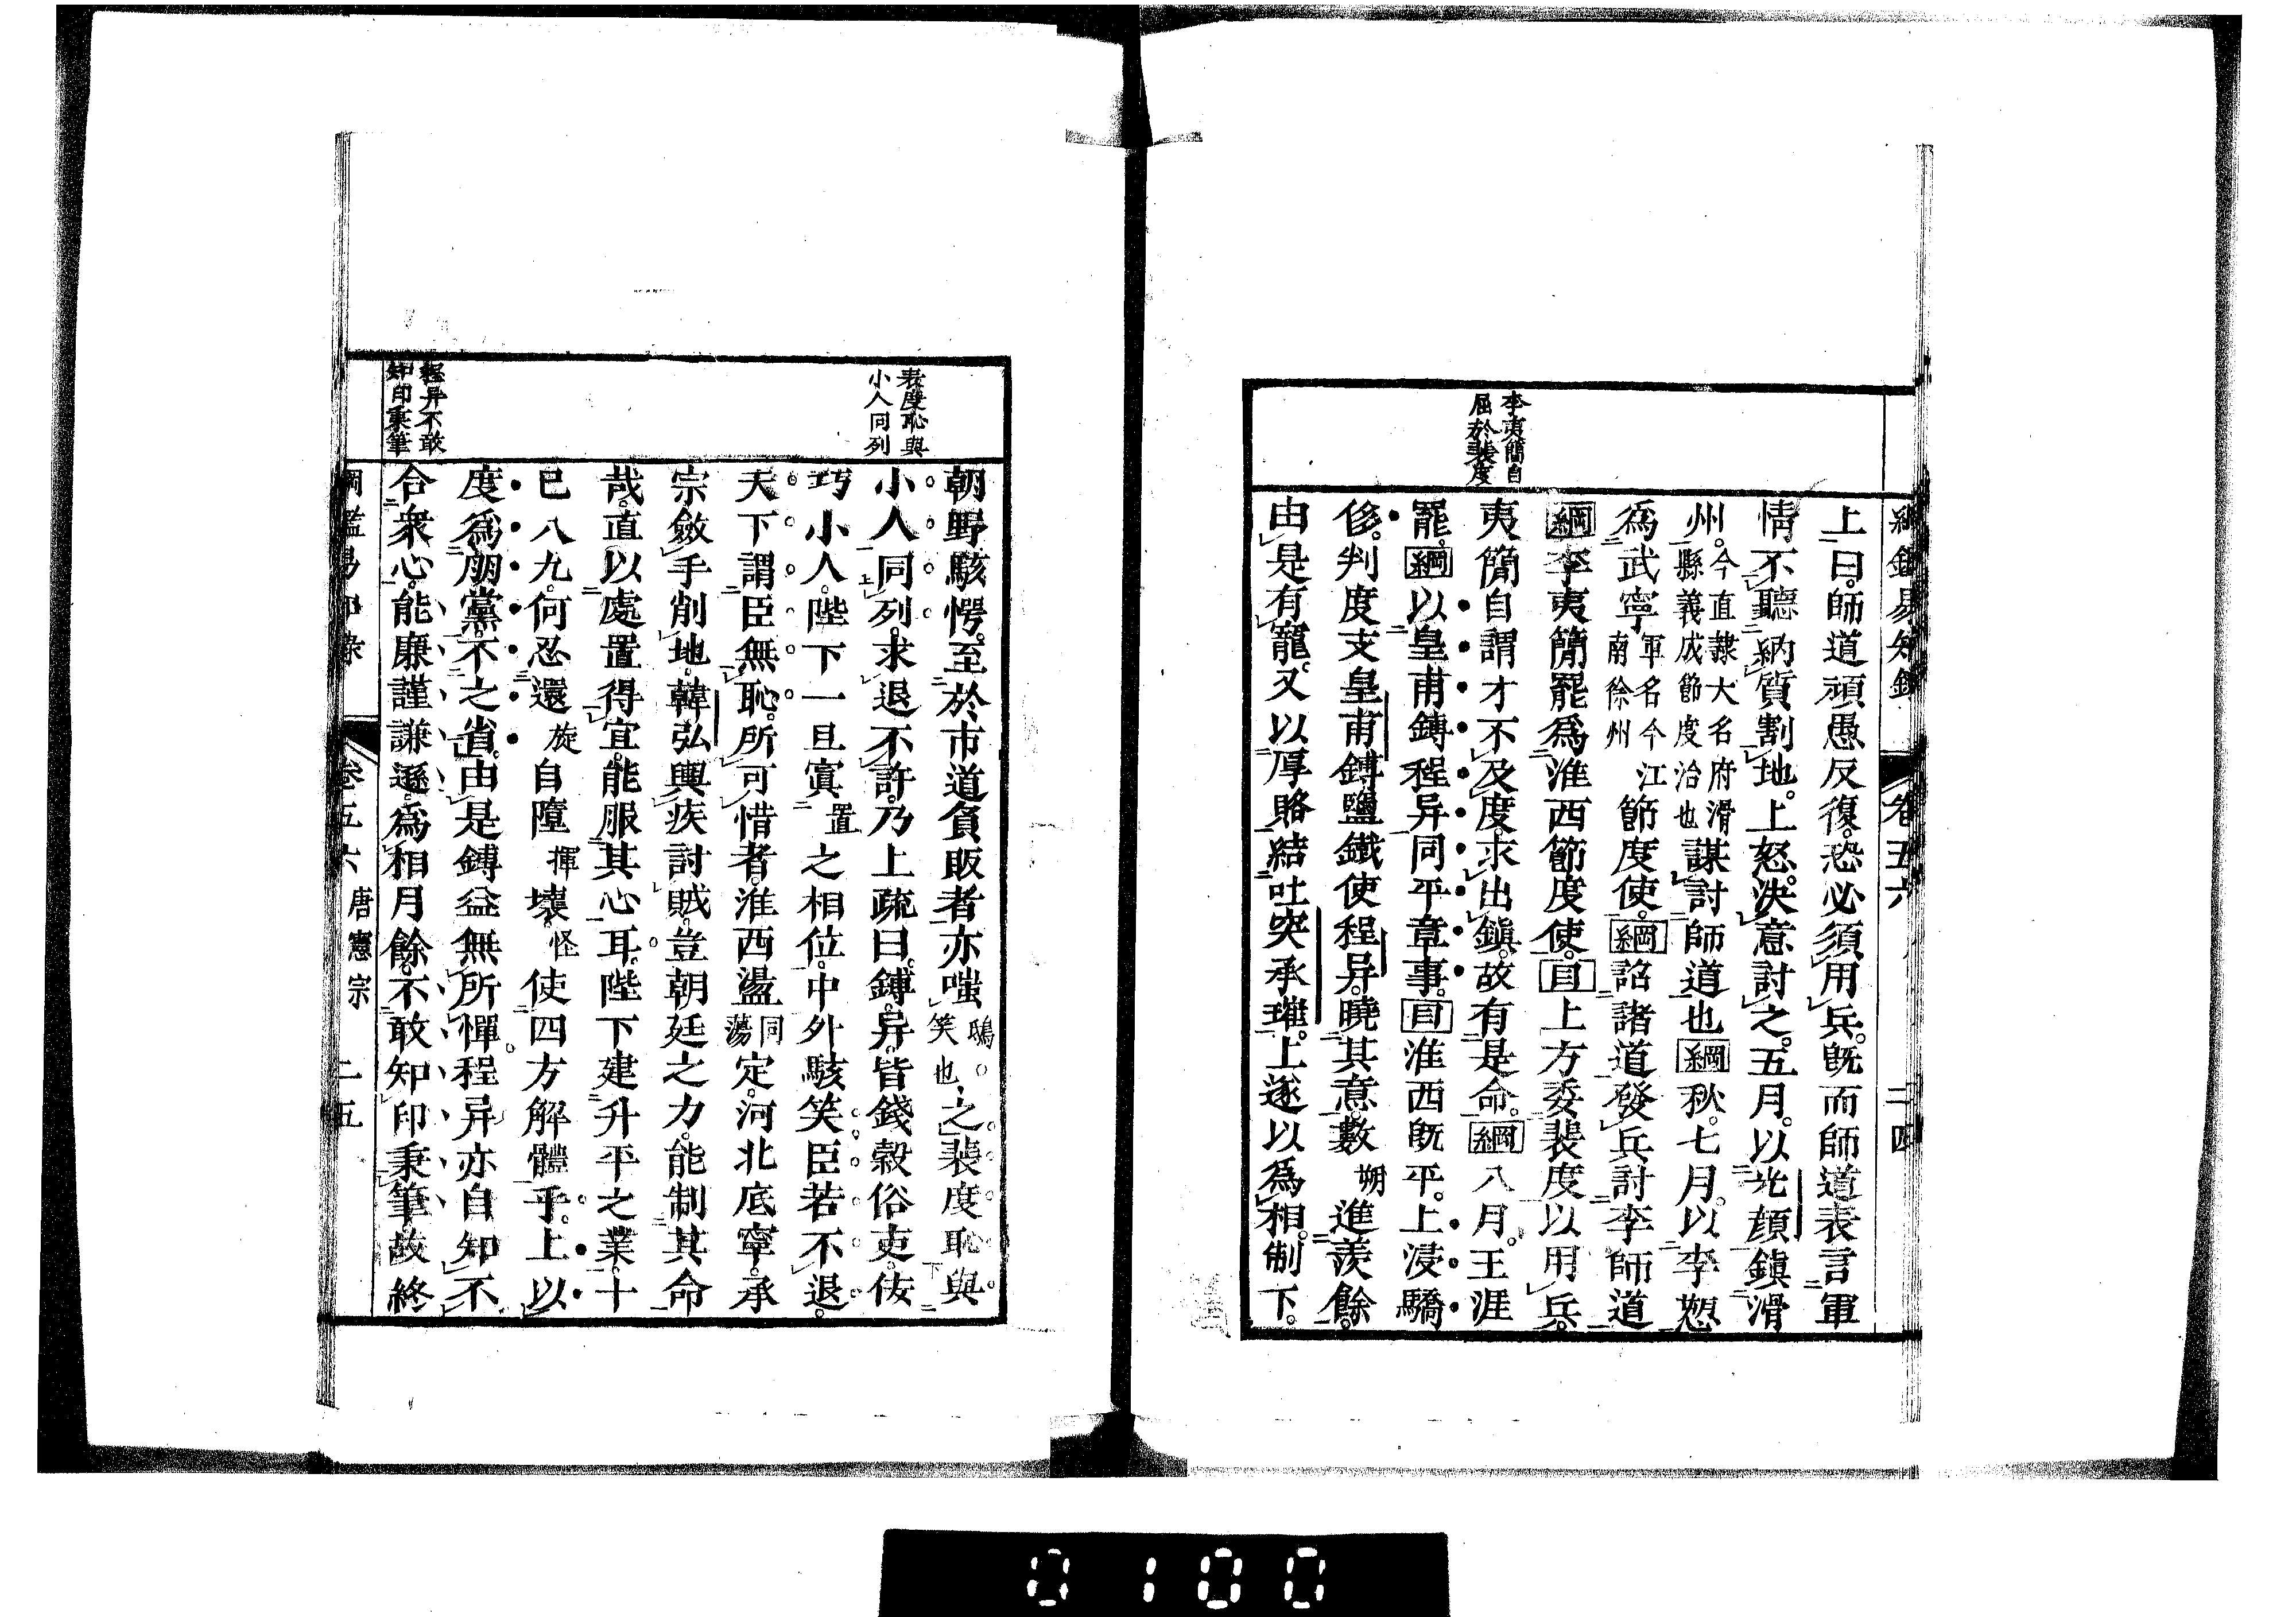 綱鑑易知錄 卷五六 二四
李夷簡自
屈於裴度
上曰。師道頑愚反復。恐必須用兵。既而師道表言軍
情不聽納質割地。上怒。決意討之。五月。以光顏鎮滑
州。今直隸大名府滑縣義成節度治也謀討師道也綱秋。七月。以李愬
為武寧軍名今江南徐州節度使。綱詔諸道發兵討李師道
綱李夷簡罷為淮西節度使。目上方委裴度以用兵。
夷簡自謂才不及度。求出鎮。故有是命。綱八月。王涯
罷。綱以皇甫鎛程异同平章事。目淮西既平。上浸驕
侈。判度支皇甫鎛鹽鐵使程异。曉其意。數朔進羨餘。
由是有寵。又以厚賂結吐突承璀。上遂以為相。制下。
表度恥與
小人同列
朝野駭愕。至於市道負販者亦嗤鴟。笑也之。裴度恥與
小人同列。求退不許。乃上疏曰。鎛。异。皆錢穀俗吏。佞
巧小人。陛下一旦寘置之相位。中外駭笑。臣若不退。
天下謂臣無恥。所可惜者。淮西盪同蕩定。河北底寧。承
宗斂手削地。韓弘輿疾討賊。豈朝廷之力。能制其命
哉。直以處置得宜。能服其心耳。陛下建升平之業。十
已八九。何忍還旋自隳揮壞。怪使四方解體乎。上以
度為朋黨。不之省。由是鎛益無所憚。程异亦自知不
合衆心。能廉謹謙遜。為相月餘。不敢知印秉筆。故終
程异不敢
知印秉筆
綱鑑易知錄 卷五六 唐憲宗 二五
0100